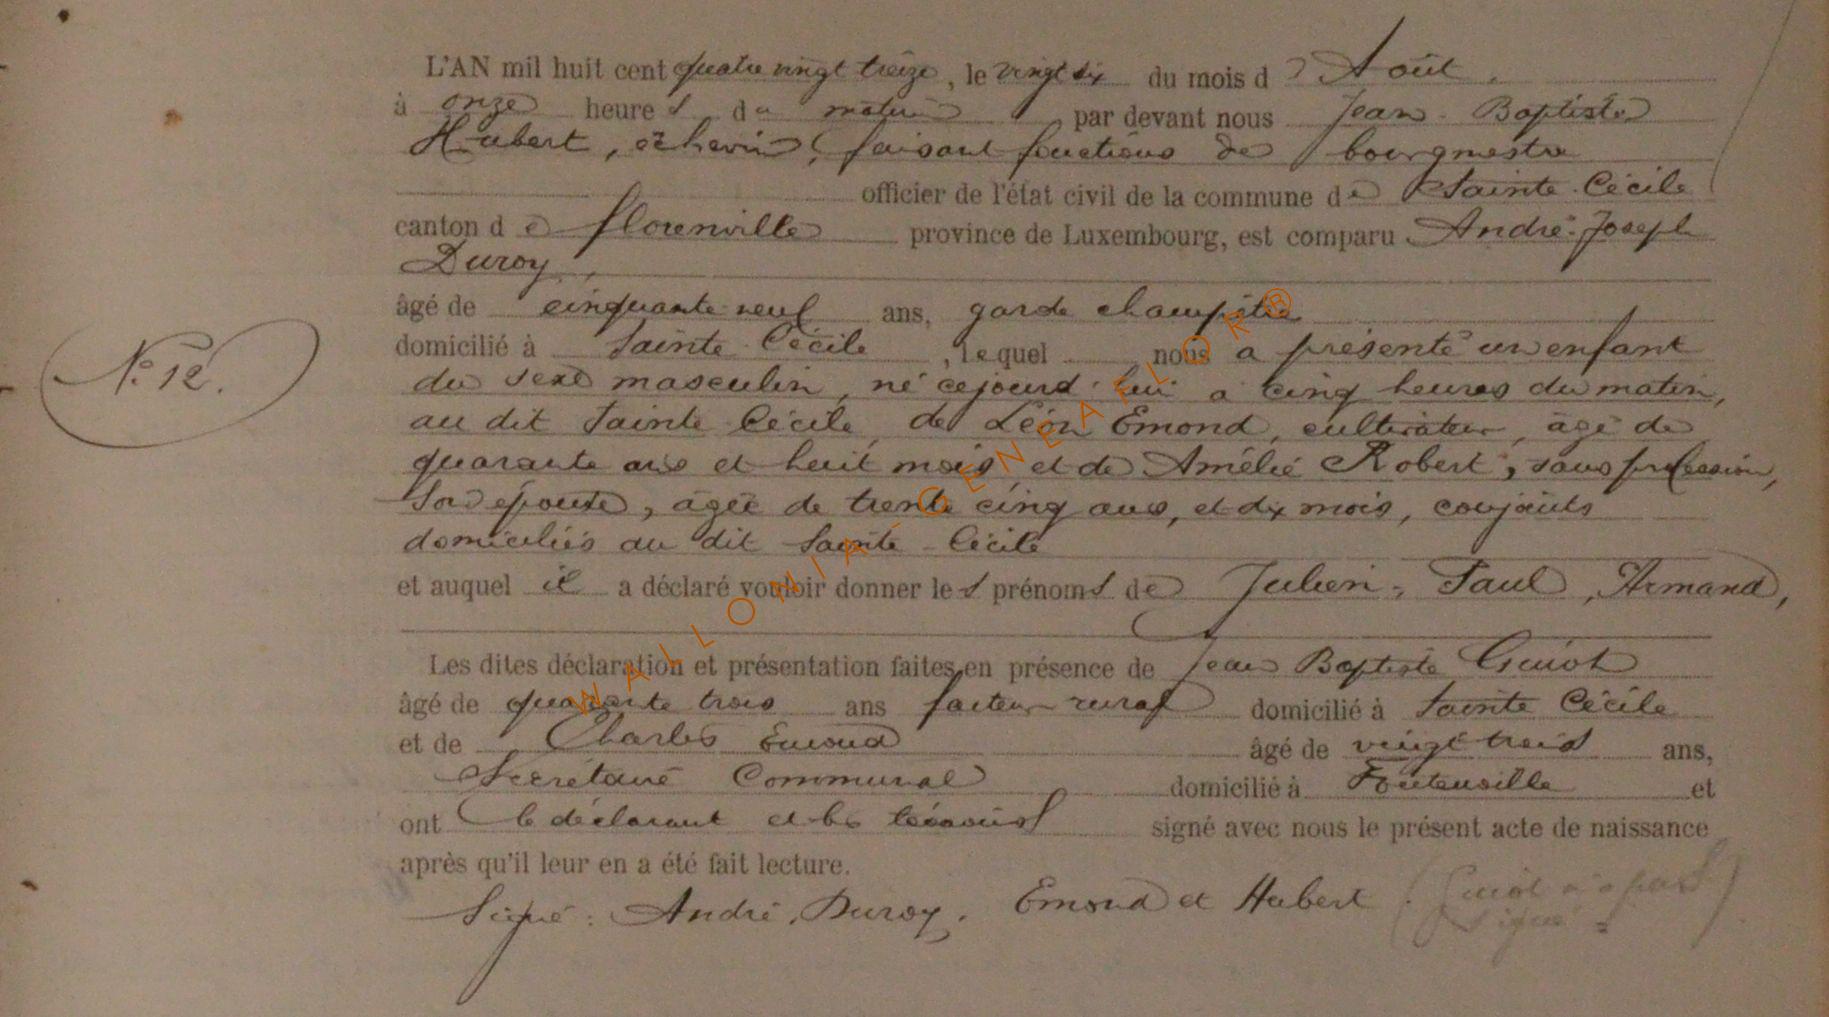 L'AN mil huit cent quatre vingt treize, le vingt six du mois d' Août,
à onze heures du matin par devant nous Jean-Baptiste
Hubert, échevin, faisant fonctions de bourgmestre
officier de l'état civil de la commune de Sainte-Cécile
canton de florenville province de Luxembourg, est comparu André-Joseph
Duroy,
âgé de cinquante neuf ans, garde champêtre
domicilié à Sainte-Cécile, lequel nous a présenté un enfant
N° 12.
du sexe masculin, né cejourd'hui à cinq heures du matin,
au dit Sainte Cécile, de Léon Emond, cultivateur, âgé de
quarante ans et huit mois, et de Amélie Robert, sans profession,
son épouse, âgée de trente cinq ans, et dix mois, conjoints
domiciliés au dit Sainte-Cécile
et auquel il a déclaré vouloir donner les prénoms de Julien, Paul, Armand,
Les dites déclaration et présentation faites en présence de Jean Baptiste Guiot
âgé de quarante trois ans facteur rural domicilié à Sainte Cécile
et de Charles Emond âgé de vingt trois ans,
Secrétaire Communal domicilié à Fontenoille et
ont le déclarant et les témoins signé avec nous le présent acte de naissance
après qu'il leur en a été fait lecture.
Signé: André, Duroy, Emond et Hubert. (Guiot n'a pas
signé.)
WALLONIA-GENEAFLOR®